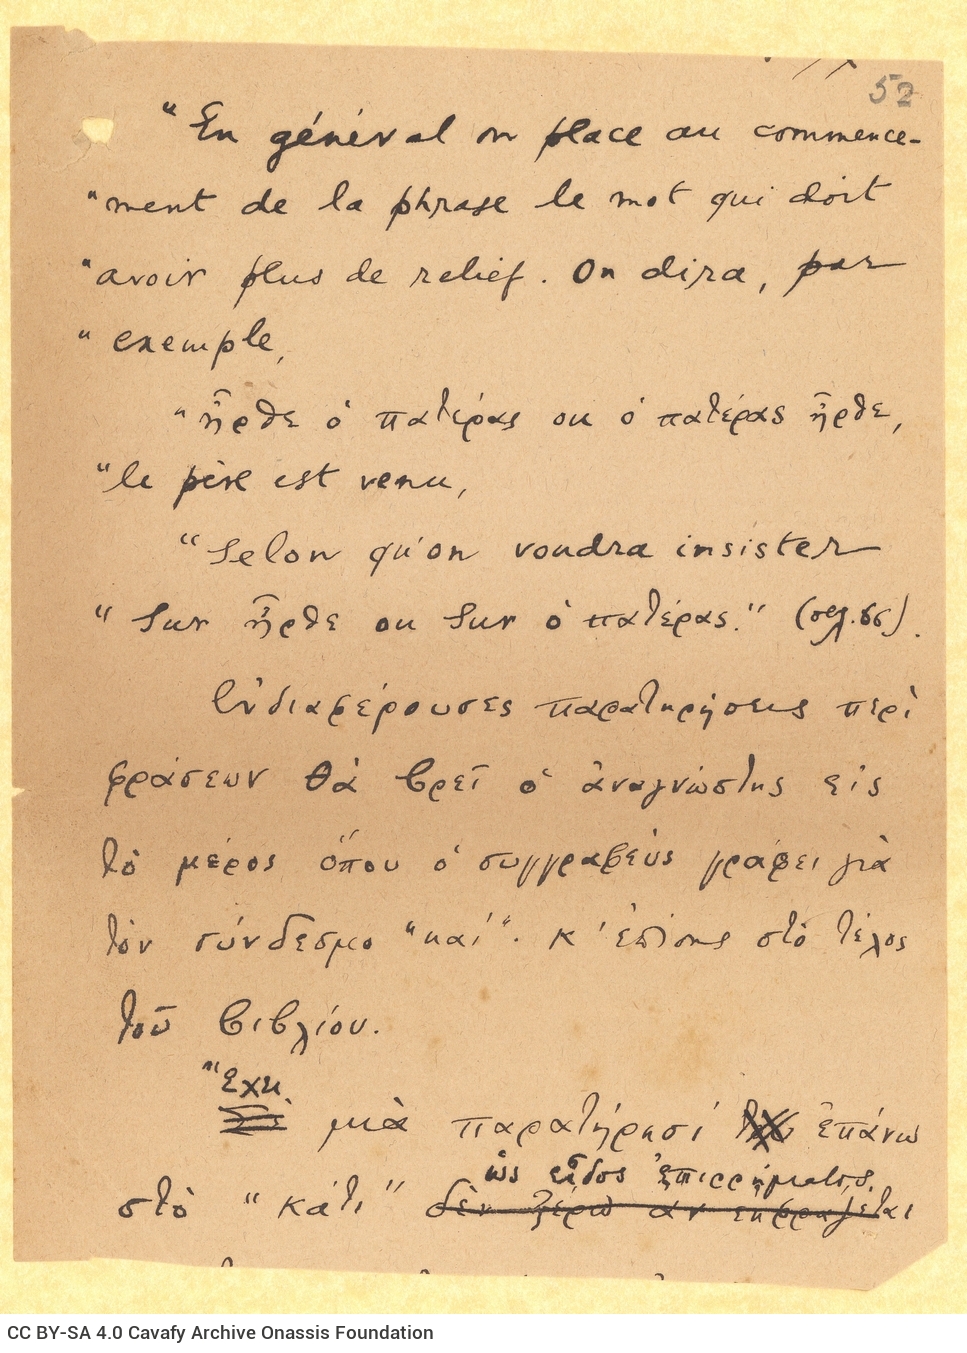 52
"En général on place au commence-
"ment de la phrase le mot qui doit
"avoir plus de relief. On dira, par
"exemple,
"ἦρθε ὁ πατέρας ou ὁ πατέρας ἦρθε,
"le père est venu,
"Selon qu'on voudra insister
"sur ἦρθε ou sur ὁ πατέρας." (σελ. 66).
Ἐνδιαφέρουσες παρατηρήσεις περὶ
φράσεων θὰ βρεῖ ὁ ἀναγνώστης εἰς
τὸ μέρος ὅπου ὁ συγγραφεὺς γράφει γιὰ
τὸν σύνδεσμο "καί". κ' ἐπίσης στὸ τέλος
τοῦ βιβλίου.
Ἔχει
μιὰ παρατήρησί του ἐπάνω
ὡς εἶδος ἐπιρρήματος.
στὸ "κάτι" δὲν ξέρω ἂν ἐκφράζεται
CC BY-SA 4.0 Cavafy Archive Onassis Foundation